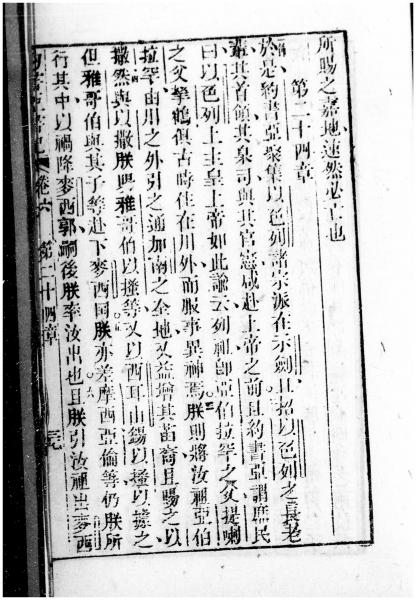 所賜之嘉地速然必亡也
第二十四章
於是約書亞聚集以色列諸宗派在示劍且招以色列之長老
輩其首領其臬司與其官憲咸赴上帝之前且約書亞謂庶民
曰以色列上主皇上帝如此諭云列祖即亞伯拉罕之父提喇
之父拏鶴俱古時住在川外而服事異神焉朕則將汝祖亞伯
拉罕由川之外引之通加南之全地又益增其苗裔且賜之以
撒然與以撒朕賜雅哥伯以掃等又以西耳山錫以掃以據之
但雅哥伯與其子等赴下麥西国朕亦差摩西亞倫等仍朕所
行其中以禍降麥西郭嗣後朕率汝出也且朕引汝祖出麥西
卷六 第二十四章